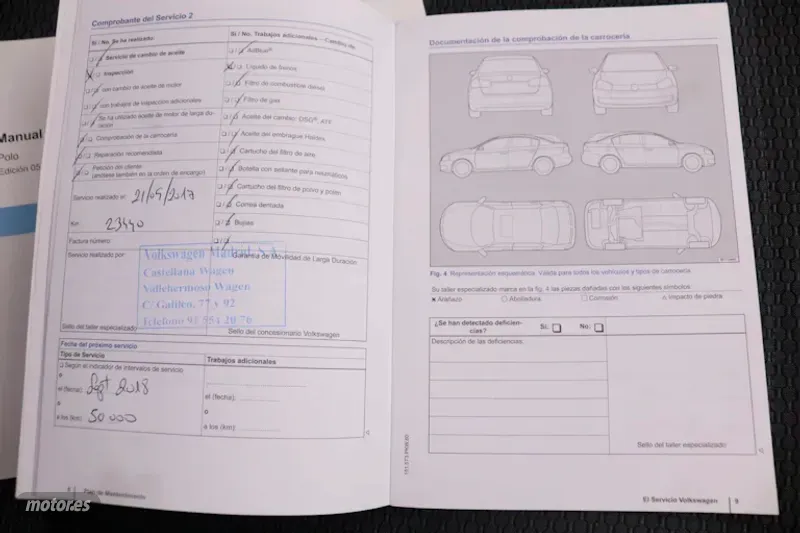 Manual
Polo
Edición 05
Comprobante del Servicio 2
Sí / No Se ha realizado:
Servicio de cambio de aceite
Inspección
con cambio de aceite de motor
con trabajos de inspección adicionales
Se ha utilizado aceite de motor de larga du-
ración
Comprobación de la carrocería
Reparación recomendada
Petición del cliente
(anótese también en la orden de encargo)
Servicio realizado el: 21/09/2017
Km: 23440
Factura número:
Servicio realizado por:
Sí / No Trabajos adicionales – Cambio de
AdBlue®
Líquido de frenos
Filtro de combustible diésel
Filtro de gas
Aceite del cambio: DSG®, ATF
Aceite del embrague Haldex
Cartucho del filtro de aire
Botella con sellante para neumáticos
Cartucho del filtro de polvo y polen
Correa dentada
Bujías
Garantía de Movilidad de Larga Duración
Volkswagen Madrid S.A.
Castellana Wagen
Vallehermoso Wagen
C/ Galileo, 77 y 92
Teléfono 91 554 20 76
Sello del taller especializado
Sello del concesionario Volkswagen
Fecha del próximo servicio
Tipo de Servicio
Trabajos adicionales
Según el indicador de intervalos de servicio
o
el (fecha): Sept 2018
o
a los (km): 50 000
el (fecha):
o
a los (km):
8 Plan de Mantenimiento
Documentación de la comprobación de la carrocería
Fig. 4 Representación esquemática: Válida para todos los vehículos y tipos de carrocería
Su taller especializado marca en la fig. 4 las piezas dañadas con los siguientes símbolos:
x Arañazo
Abolladura
Corrosión
Impacto de piedra
¿Se han detectado deficien-
cias?
Sí:
No:
Descripción de las deficiencias:
Sello del taller especializado
El Servicio Volkswagen 9
motor.es